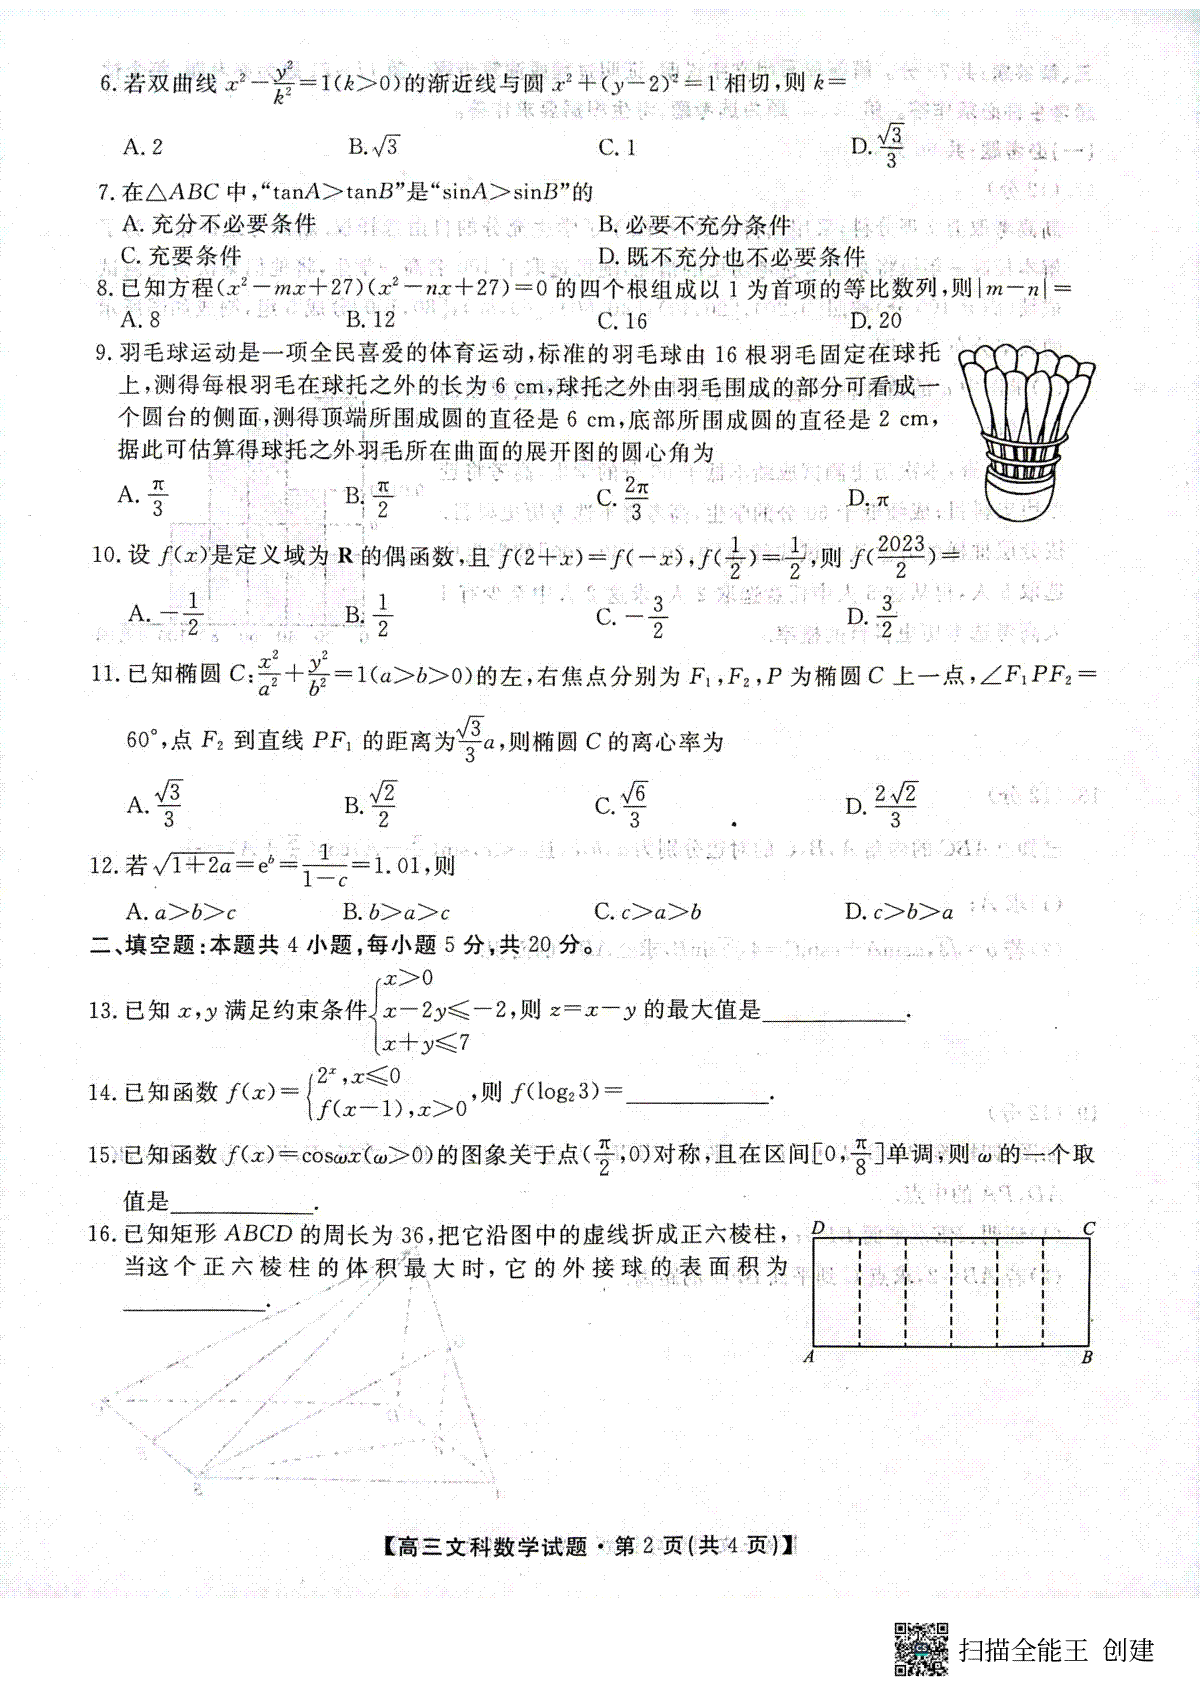 6.若双曲线 x²－y²/k²＝1(k＞0)的渐近线与圆 x²＋(y－2)²＝1 相切,则 k＝
A. 2 B. √3 C. 1 D. √3/3
7.在△ABC 中,“tanA＞tanB”是“sinA＞sinB”的
A. 充分不必要条件 B. 必要不充分条件
C. 充要条件 D. 既不充分也不必要条件
8.已知方程(x²－mx＋27)(x²－nx＋27)＝0 的四个根组成以 1 为首项的等比数列,则|m－n|＝
A. 8 B. 12 C. 16 D. 20
9.羽毛球运动是一项全民喜爱的体育运动,标准的羽毛球由 16 根羽毛固定在球托
上,测得每根羽毛在球托之外的长为 6 cm,球托之外由羽毛围成的部分可看成一
个圆台的侧面,测得顶端所围成圆的直径是 6 cm,底部所围成圆的直径是 2 cm,
据此可估算得球托之外羽毛所在曲面的展开图的圆心角为
A. π/3 B. π/2 C. 2π/3 D. π
10.设 f(x)是定义域为 R 的偶函数,且 f(2＋x)＝f(－x),f(1/2)＝1/2,则 f(2023/2)＝
A. －1/2 B. 1/2 C. －3/2 D. 3/2
11.已知椭圆 C:x²/a²＋y²/b²＝1(a＞b＞0)的左,右焦点分别为 F₁,F₂,P 为椭圆 C 上一点,∠F₁PF₂＝
60°,点 F₂ 到直线 PF₁ 的距离为√3/3a,则椭圆 C 的离心率为
A. √3/3 B. √2/2 C. √6/3 D. 2√2/3
12.若 √(1＋2a)＝eᵇ＝1/(1－c)＝1.01,则
A. a＞b＞c B. b＞a＞c C. c＞a＞b D. c＞b＞a
二、填空题:本题共 4 小题,每小题 5 分,共 20 分。
13.已知 x,y 满足约束条件{x＞0 x－2y≤－2 x＋y≤7,则 z＝x－y 的最大值是________.
14.已知函数 f(x)＝{2ˣ,x≤0 f(x－1),x＞0,则 f(log₂3)＝________.
15.已知函数 f(x)＝cosωx(ω＞0)的图象关于点(π/2,0)对称,且在区间[0,π/8]单调,则 ω 的一个取
值是________.
16.已知矩形 ABCD 的周长为 36,把它沿图中的虚线折成正六棱柱,
当这个正六棱柱的体积最大时,它的外接球的表面积为
________.
D C
A B
【高三文科数学试题·第 2 页(共 4 页)】
扫描全能王 创建